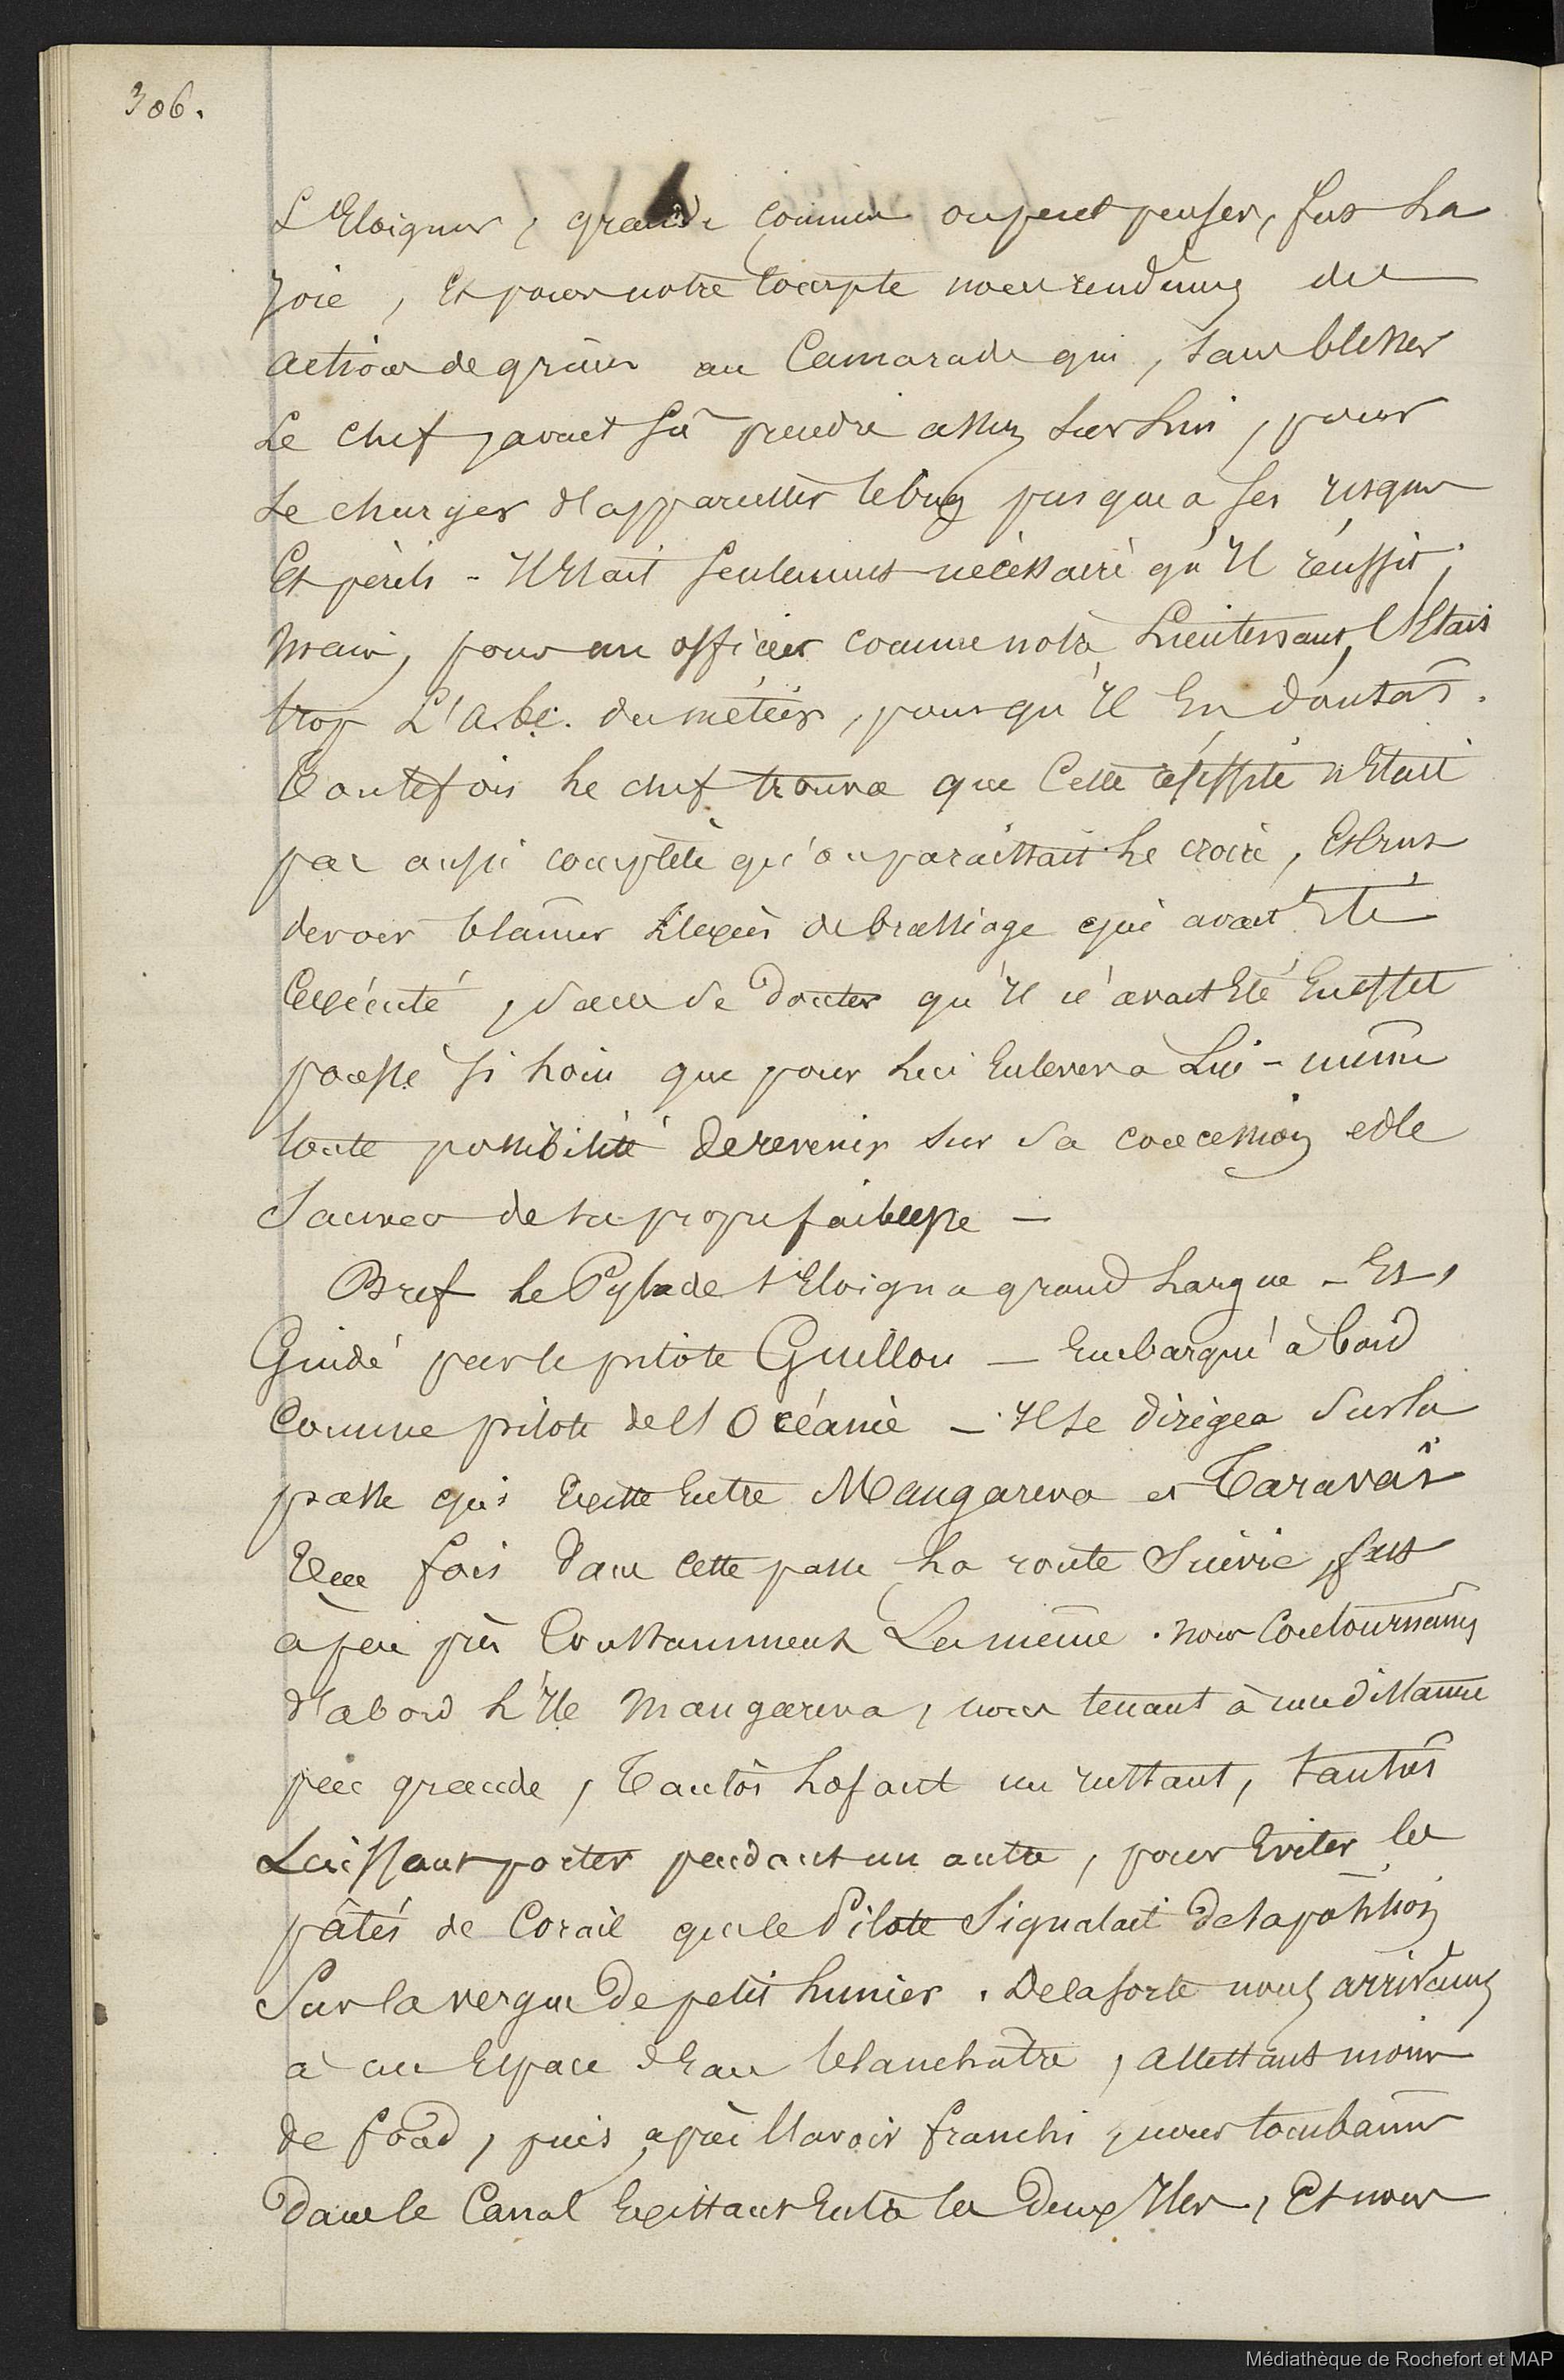 306.
S'Eloigner, grande comme on peut penser, fut La
joie, Et pour notre compte nous rendimes des
actions de grâces au Camarade qui, sans blesser
Le chef, avait sû prendre assez sur Lui, pour
se charger d'appareiller le brig presque à ses risques
Et périls - Il Etait seulement nécessaire qu'Il réussit;
Mais, pour un officier comme notre Lieutenant, C'Etait
trop L'a.b.c. du métier, pour qu'Il En doutât.
Toutefois Le chef trouva que Cette réussite n'Etait
pas aussi complète qu'on paraissait Le croire, Et crut
devoir blâmer L'excès de brassiage qui avait Eté
Exécuté, sans se douter qu'Il n'avait Eté En effet
poussé si Loin que pour Lui Enlever à Lui-même
toute possibilité de revenir sur sa concession et le
Sauver de sa propre faiblesse -
Bref Le Pylade s'Eloigna grand Largue - Et,
Guidé par le pilote Guillou - Embarqué à bord
Comme pilote de l'Océanie - Il se dirigea sur la
passe qui Existe Entre Mangareva et Taravaï
Une fois dans cette passe La route Suivie, fut
à peu près Constamment La même. nous Contournames
d'abord L'Ile Mangareva, nous tenant à une distance
peu grande, Tantôt Lofant un instant, tantôt
Laissant porter pendant un autre, pour Eviter les
pâtés de Corail que le Pilote Signalait de sa position
Sur la vergue de petit hunier. De la sorte nous arrivames
à un Espace d'Eau blanchâtre, attestant moins
de fond, puis après l'avoir franchi, nous tombâmes
Dans le Canal Existant Entre les Deux Iles, Et nous
Médiathèque de Rochefort et MAP